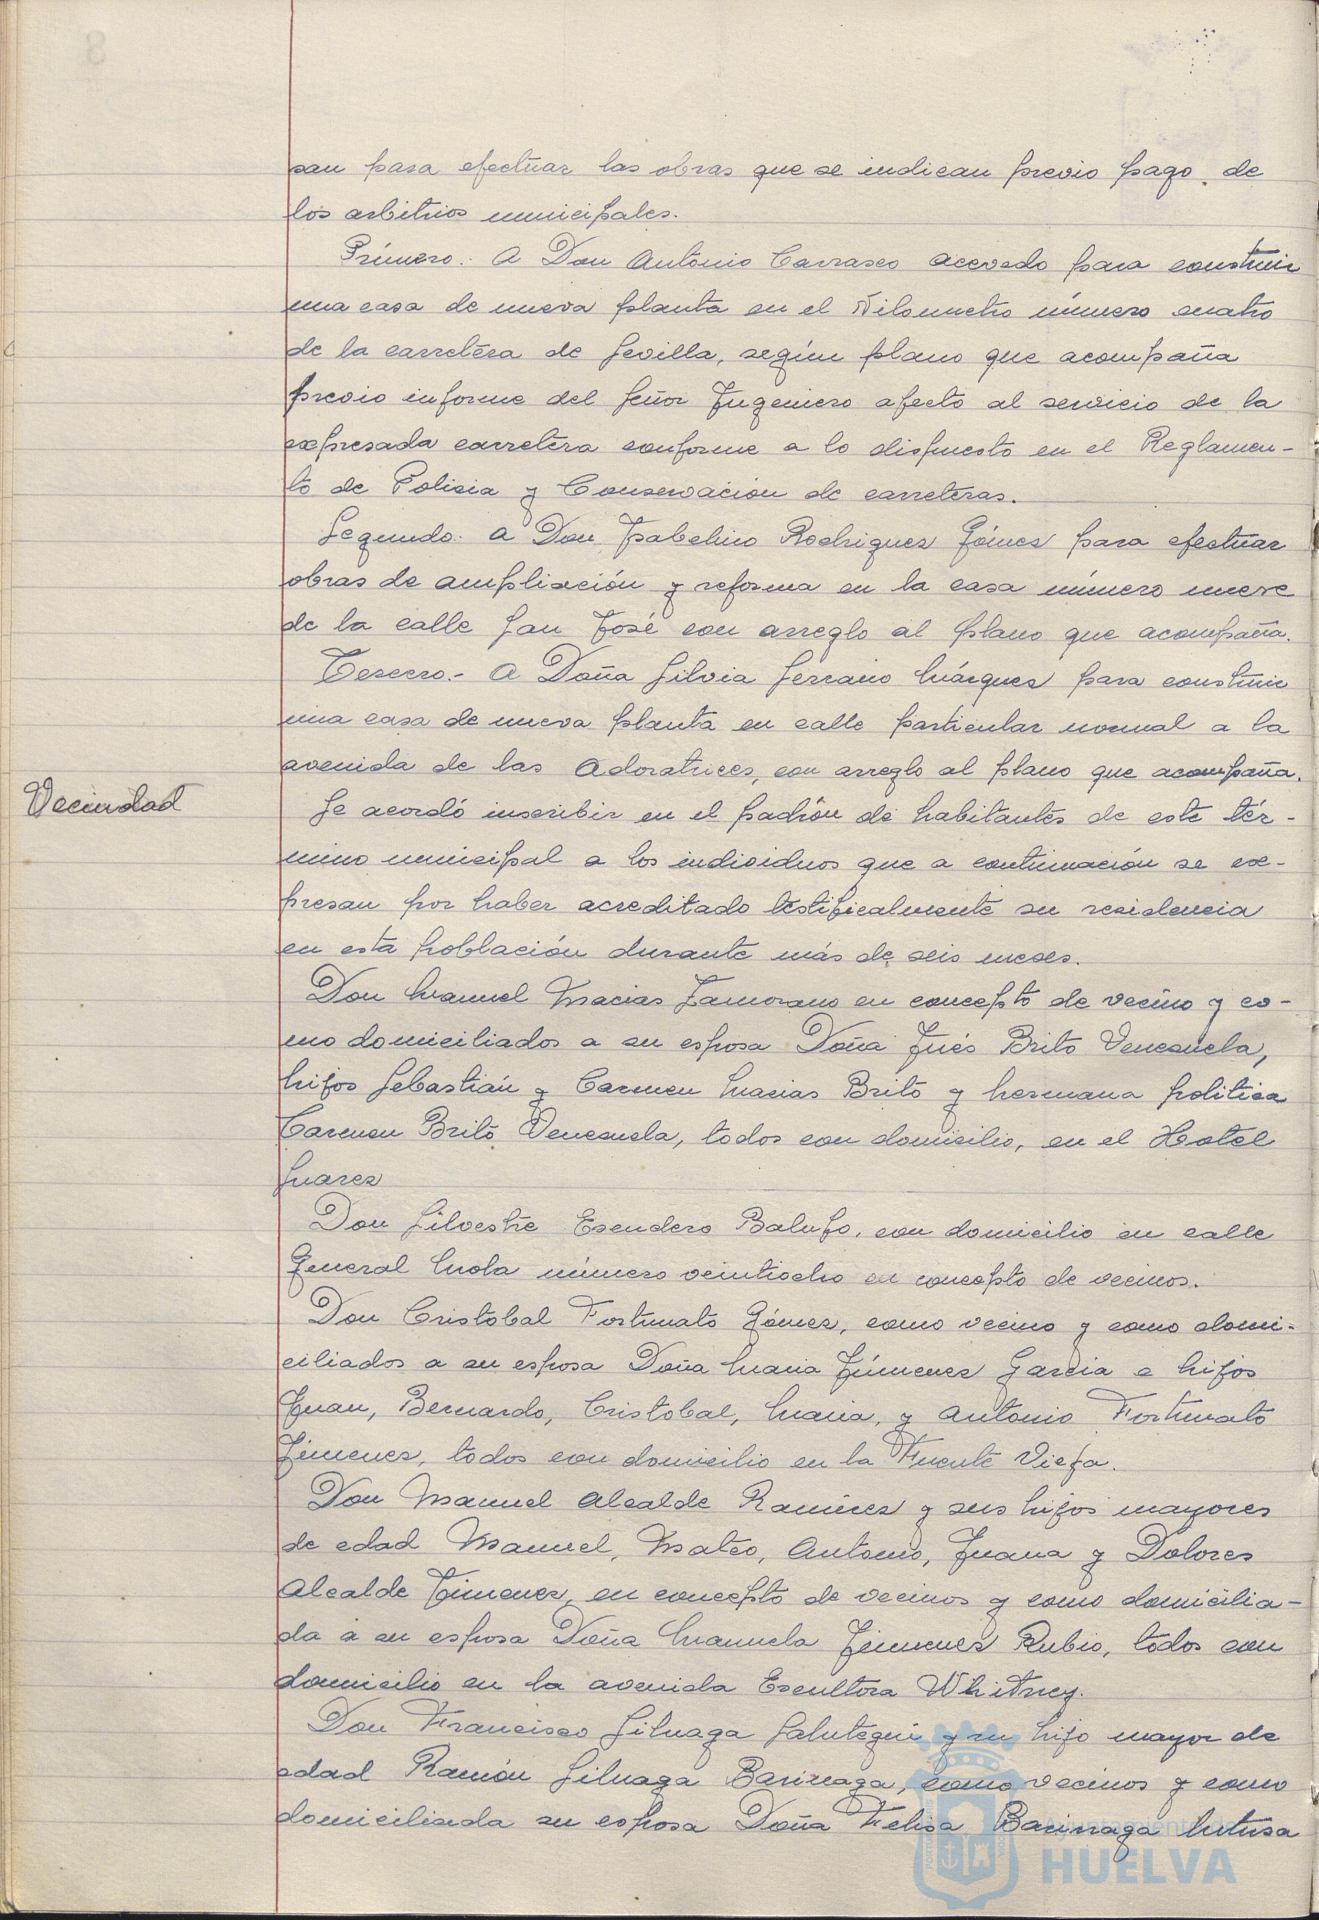 san para efectuar las obras que se indican previo pago de
los arbitrios municipales.
Primero.- A Don Antonio Carrasco Acevedo para construir
una casa de nueva planta en el Kilometro número cuatro
de la carretera de Sevilla, según plano que acompaña
previo informe del Señor Ingeniero afecto al servicio de la
expresada carretera conforme a lo dispuesto en el Reglamen-
to de Policia y Conservación de carreteras.
Segundo.- a Don Isabelino Rodriguez Gómez para efectuar
obras de ampliación y reforma en la casa número nueve
de la calle San José con arreglo al plano que acompaña.
Tercero.- A Doña Silvia Serrano Márquez para construir
una casa de nueva planta en calle particular normal a la
avenida de las Adoratrices, con arreglo al plano que acompaña.
Vecindad
Se acordó inscribir en el padrón de habitantes de este tér-
mino municipal a los individuos que a continuación se ex-
presan por haber acreditado testificalmente su residencia
en esta población durante más de seis meses.
Don Manuel Macias Zamorano en concepto de vecino y co-
mo domiciliados a su esposa Doña Inés Brito Venezuela,
hijos Sebastián y Carmen Macias Brito y hermana politica
Carmen Brito Venezuela, todos con domicilio, en el Hotel
Suarez
Don Silvestre Escudero Balufo, con domicilio en calle
General Mola número veintiocho en concepto de vecinos.
Don Cristobal Fortunato Gómez, como vecino y como domi-
ciliados a su esposa Doña Maria Jimenez Garcia e hijos
Juan, Bernardo, Cristobal, Maria, y Antonio Fortunato
Jimenez, todos con domicilio en la Fuente Vieja.
Don Manuel Alcalde Ramirez y sus hijos mayores
de edad Manuel, Mateo, Antonio, Juana y Dolores
Alcalde Jimenez, en concepto de vecinos y como domicilia-
da a su esposa Doña Manuela Jimenez Rubio, todos con
domicilio en la avenida Escultora Whitney.
Don Francisco Siluaga y su hijo mayor de
edad Ramón Siluaga Barinaga, como vecinos y como
domiciliada su esposa Doña Felisa Barinaga
Ayuntamiento de
HUELVA